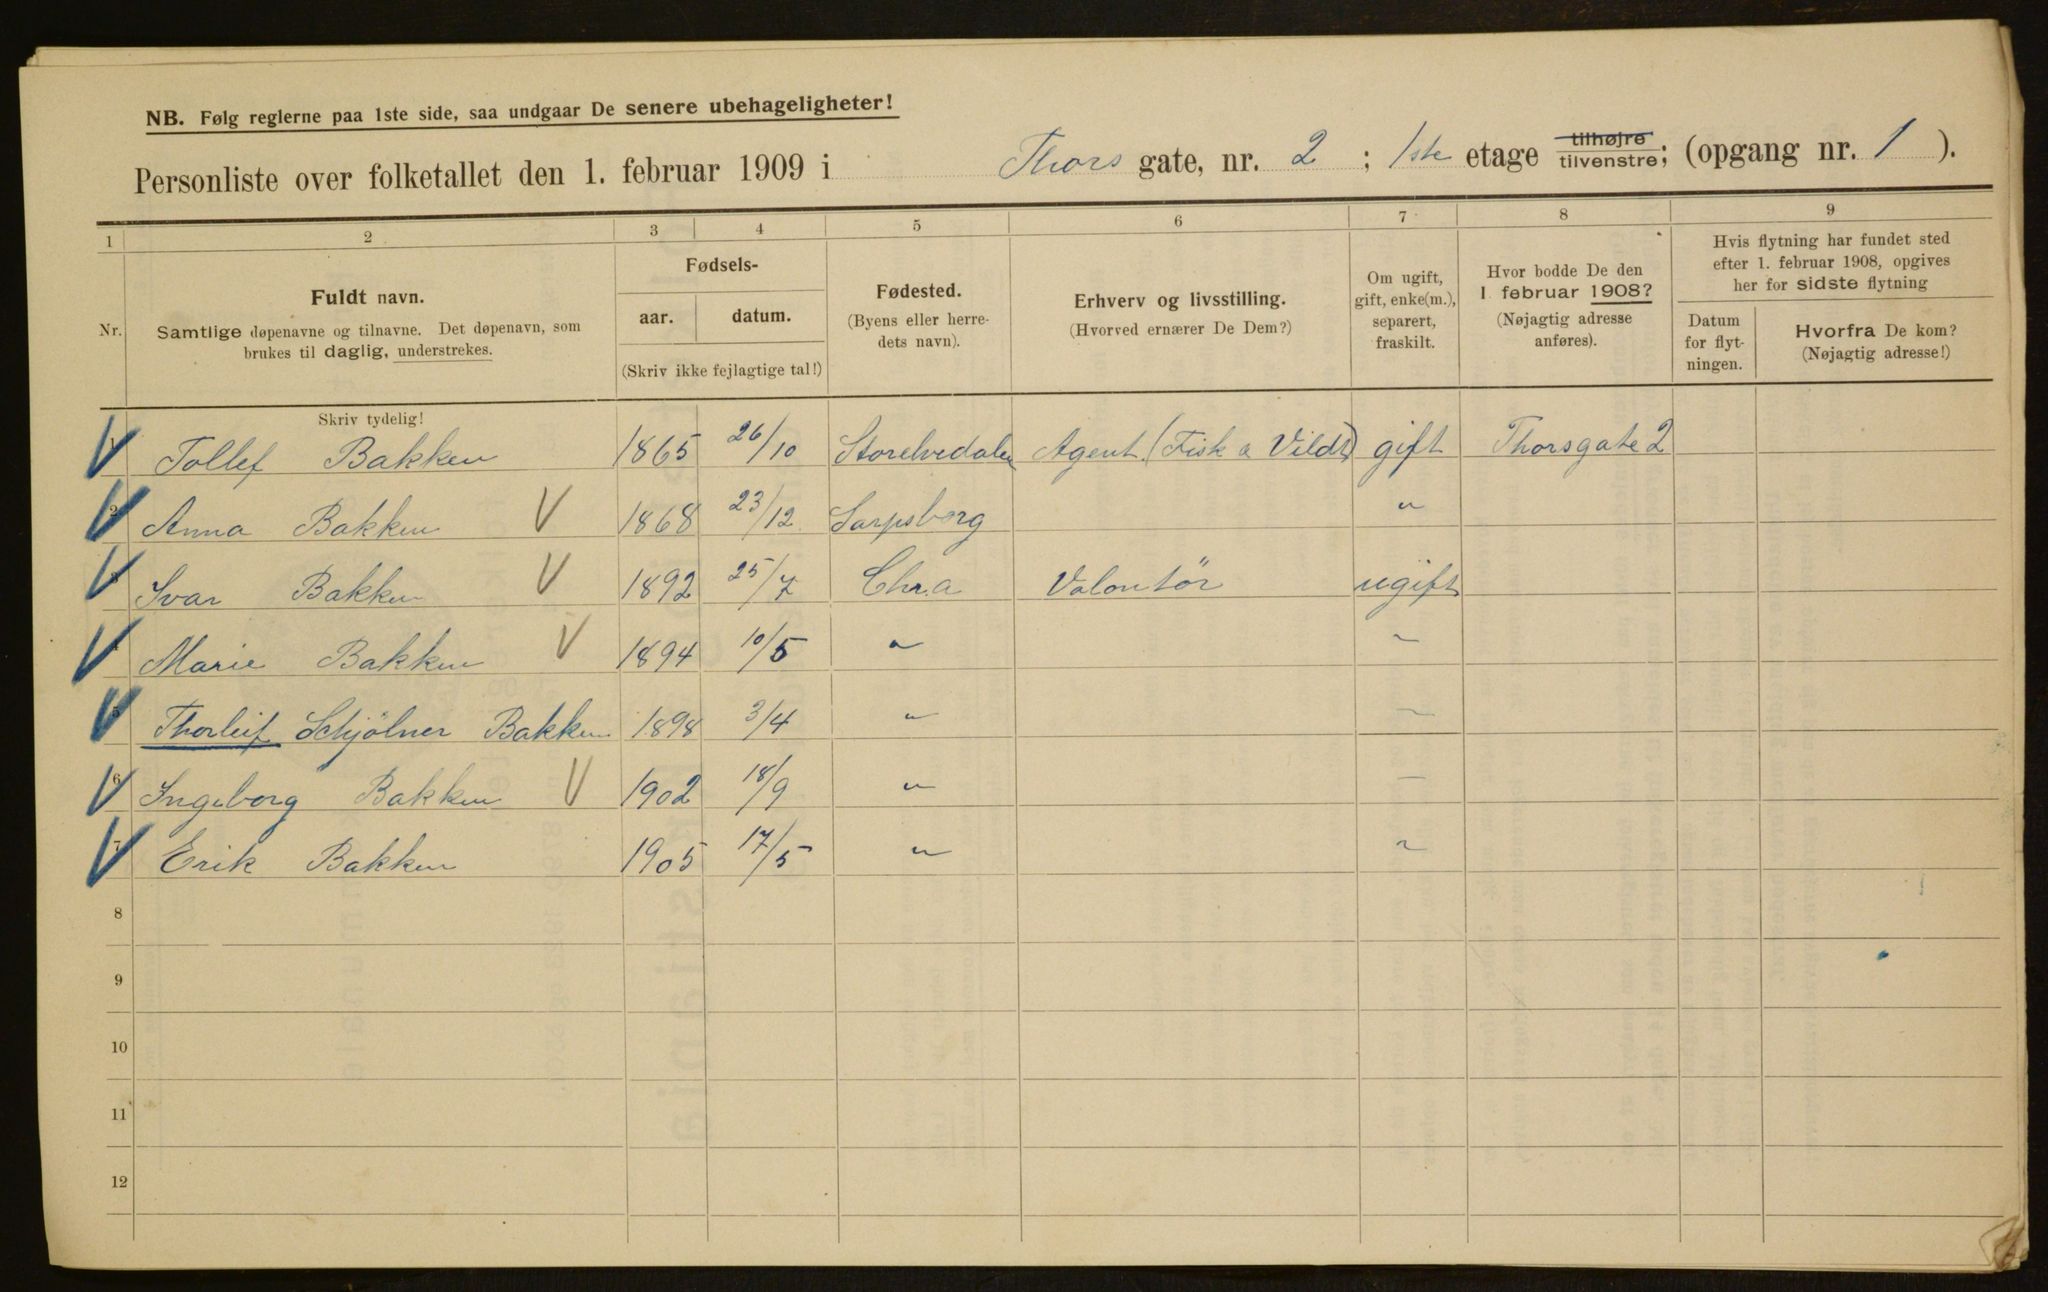 NB. Følg reglerne paa 1ste side, saa undgaar De senere ubehageligheter!
Personliste over folketallet den 1. februar 1909 i Thors gate, nr. 2 ; 1ste etage tilhøjre tilvenstre; (opgang nr. 1 ).
1 2 3 4 5 6 7 8 9
Nr.
Fuldt navn.
Samtlige døpenavne og tilnavne. Det døpenavn, som
brukes til daglig, understrekes.
Fødsels-
aar. datum.
(Skriv ikke fejlagtige tal!)
Fødested.
(Byens eller herre-
dets navn).
Erhverv og livsstilling.
(Hvorved ernærer De Dem?)
Om ugift,
gift, enke(m.),
separert,
fraskilt.
Hvor bodde De den
1 februar 1908?
(Nøjagtig adresse
anføres).
Hvis flytning har fundet sted
efter 1. februar 1908, opgives
her for sidste flytning
Datum
for flyt-
ningen.
Hvorfra De kom?
(Nøjagtig adresse!)
Skriv tydelig!
1 Tollef Bakken 1865 26/10 Storelvedalen Agent (Fisk & Vildt) gift Thorsgate 2
2 Anna Bakken 1868 23/12 Sarpsborg "
3 Ivar Bakken 1892 25/7 Chr.a Volontör ugift
4 Marie Bakken 1894 10/5 " "
5 Thorleif Schjölner Bakken 1898 3/4 " "
6 Ingeborg Bakken 1902 18/9 " "
7 Erik Bakken 1905 17/5 " "
8
9
10
11
12